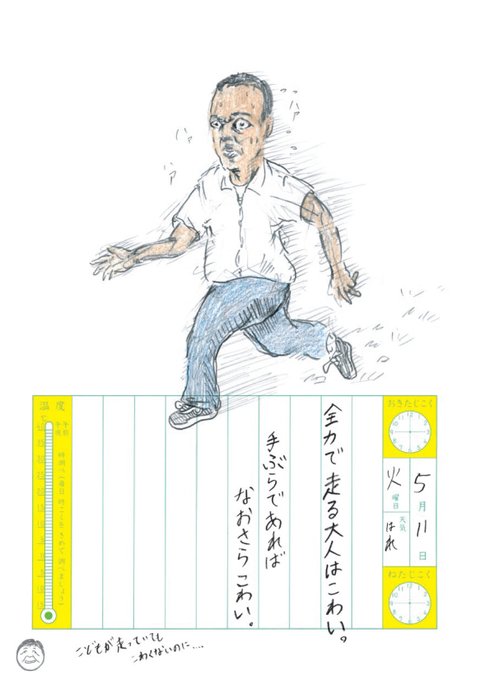 ハァ
ハァ
ハァ
おきたじこく
5月11日
火曜日
天気
はれ
ねたじこく
全力で走る大人はこわい。
手ぶらであれば
なおさらこわい。
温度
午前
午後
こどもが走っていても
こわくないのに…